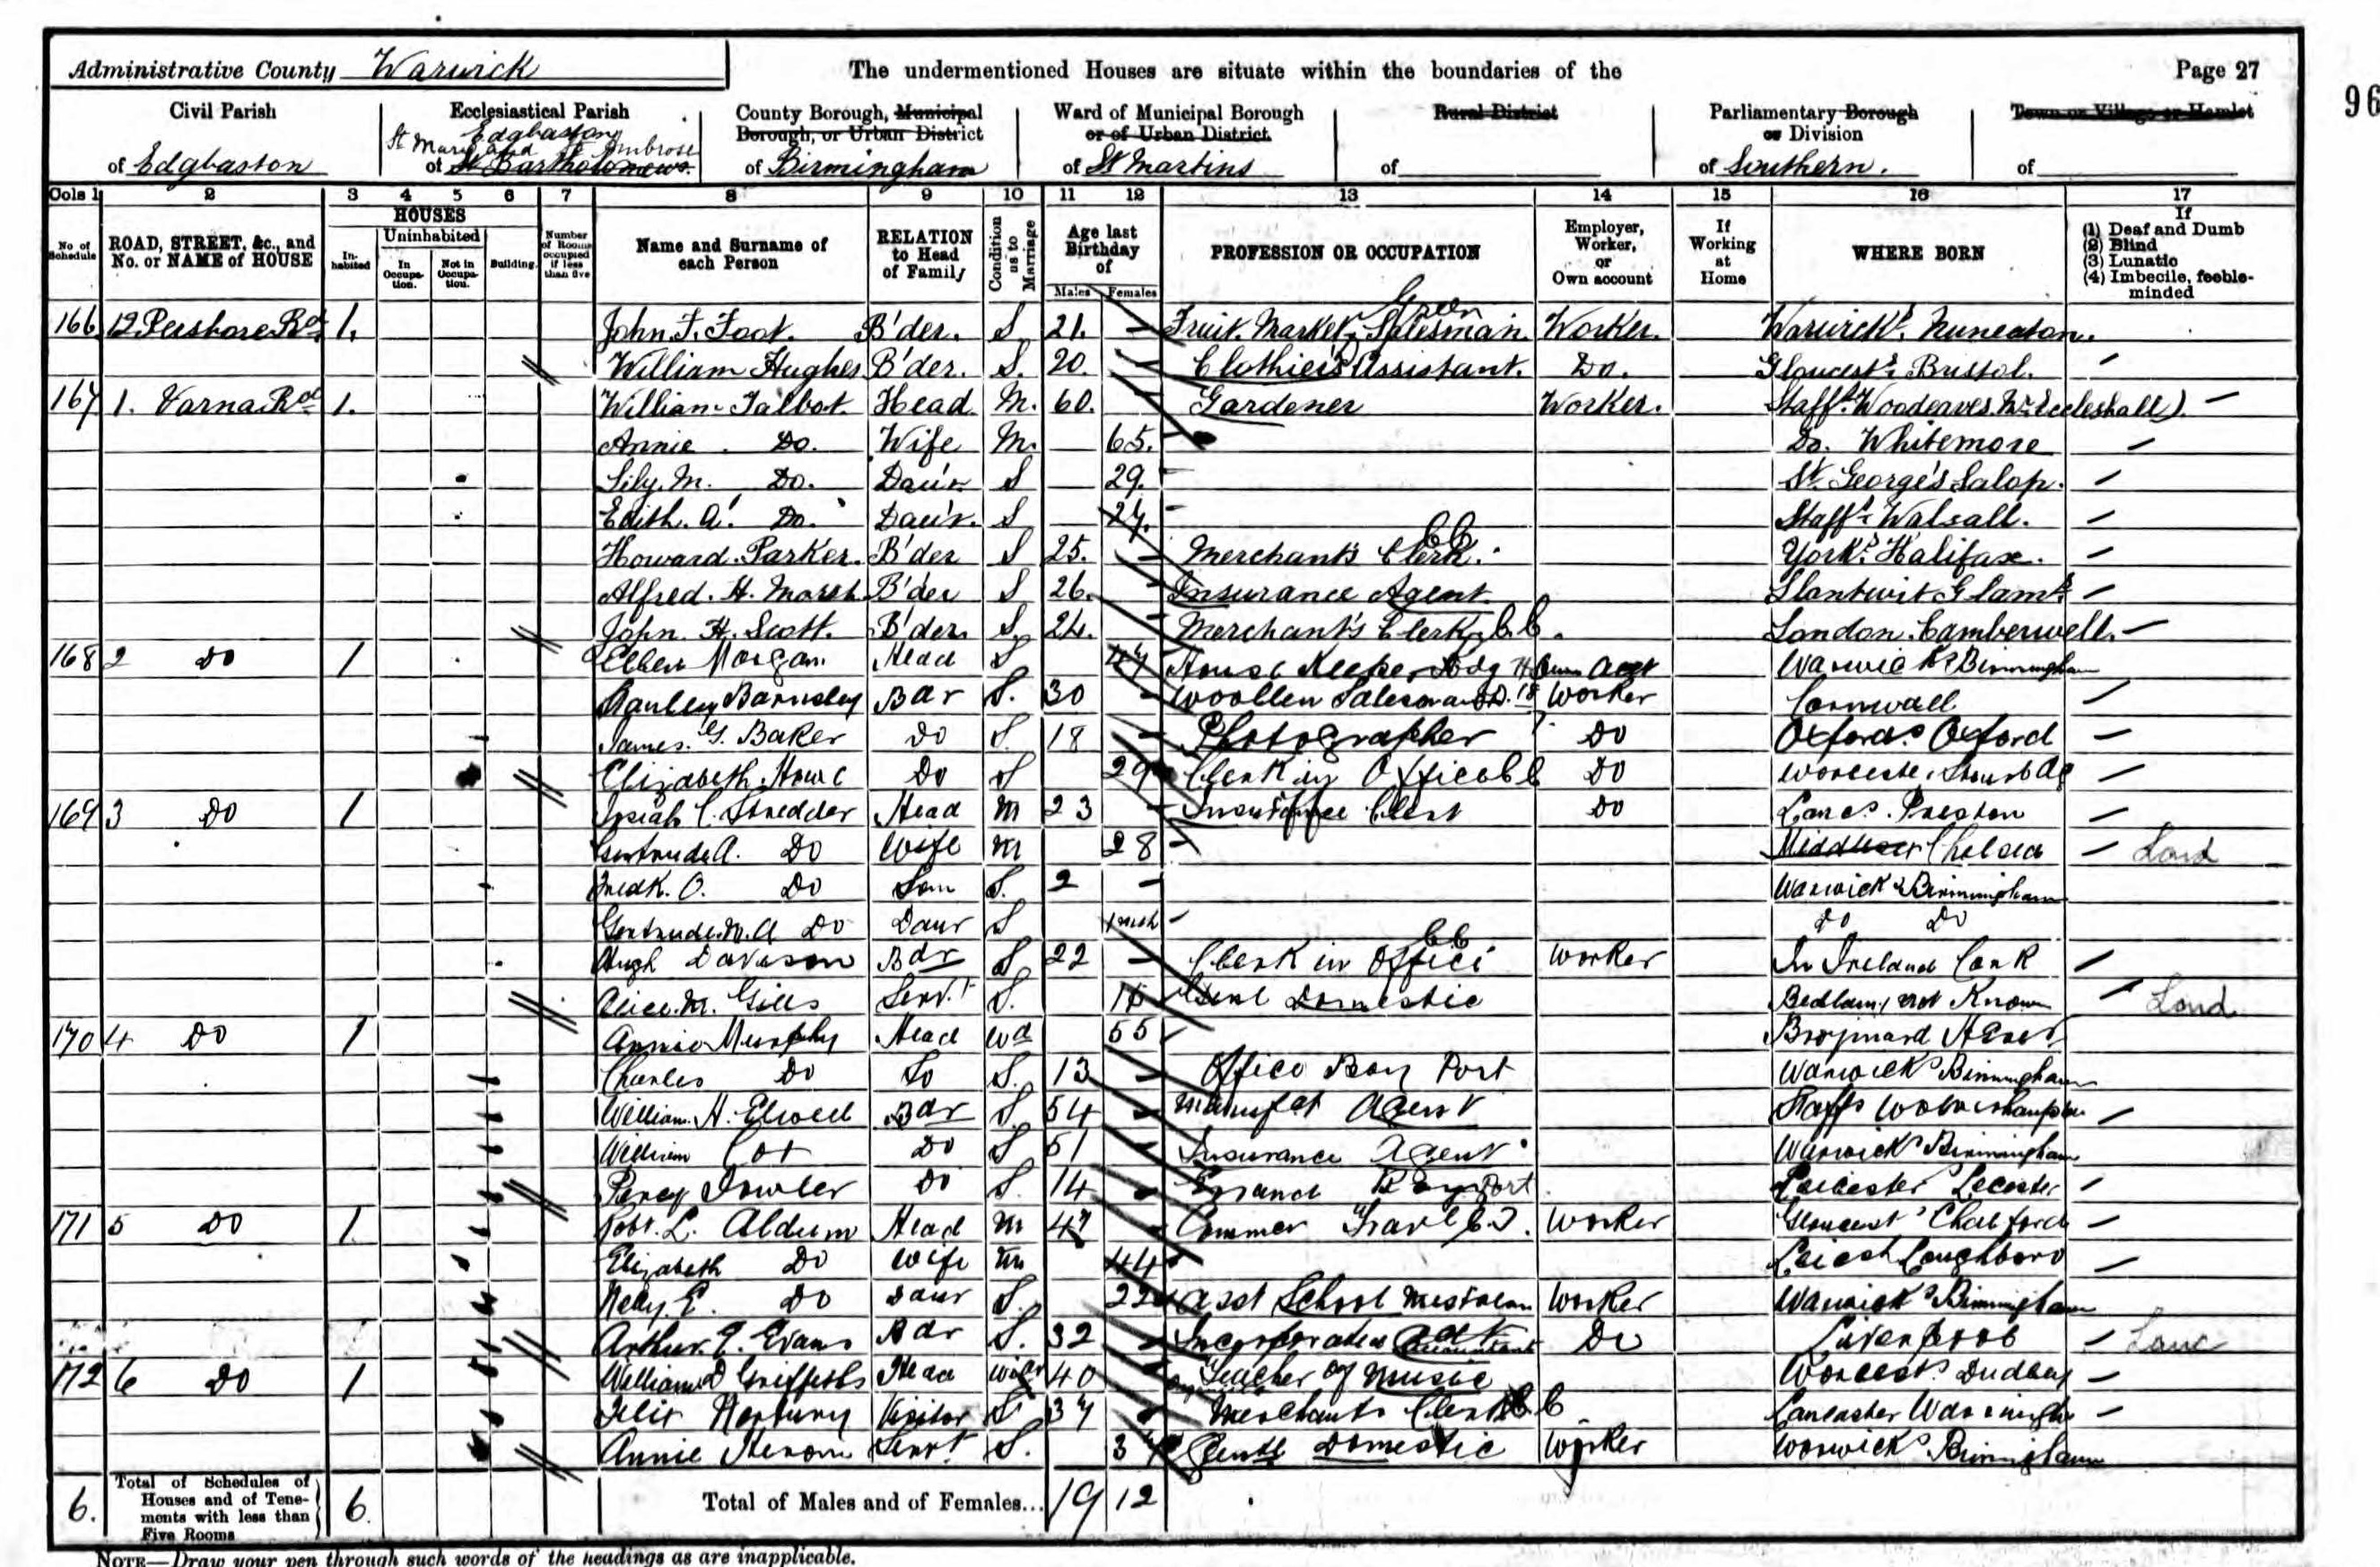 Administrative County Warwick
The undermentioned Houses are situate within the boundaries of the
Page 27
96
Civil Parish of Edgbaston
Ecclesiastical Parish of Edgbaston St Mary and St Ambrose St Bartholomews
County Borough, Municipal Borough, or Urban District of Birmingham
Ward of Municipal Borough or of Urban District of St Martins
Rural District of
Parliamentary Borough or Division of Southern.
Town or Village or Hamlet of
Cols 1 2 3 4 5 6 7 8 9 10 11 12 13 14 15 16 17
No of Schedule
ROAD, STREET, &c., and No. or NAME of HOUSE
HOUSES
Inhabited
Uninhabited
In Occupation.
Not in Occupation.
Building.
Number of Rooms occupied if less than five
Name and Surname of each Person
RELATION to Head of Family
Condition as to Marriage
Age last Birthday of
Males Females
PROFESSION OR OCCUPATION
Employer, Worker, or Own account
If Working at Home
WHERE BORN
If
(1) Deaf and Dumb
(2) Blind
(3) Lunatic
(4) Imbecile, feeble-minded
166 12 Pershore Rd 1. John. F. Foot. B'der. S 21. – Fruit. Market Salesman. Green Worker. Warwicks. Nuneaton.
William Hughes B'der. S. 20. – Clothier's Assistant. Do. Gloucest. Bristol. –
167 1. Varna Rd 1. William Talbot. Head M. 60. – Gardener Worker. Staffs. Woodeaves Nr Eccleshall). –
Annie Do. Wife M. 65. Do. Whitemore –
Lily. M. Do. Daur. S 29. – St George's Salop. –
Edith. A. Do. Daur. S 27. – Staffs. Walsall. –
Howard. Parker. B'der S 25. – Merchants Clerk. Yorks. Halifax. –
Alfred. H. Marsh B'der S 26. – Insurance Agent. Llantwit Glam. –
John. H. Scott. B'der. S. 24. – Merchant's Clerk London. Camberwell. –
168 2 Do 1 Ellen Morgan Head S 47 House Keeper Lodg H Own Acct Warwicks Birmingham
Stanley Barnsley Bdr S. 30 – Woollen Salesman Worker Cornwall –
James. G. Baker Do S. 18 – Photographer Do Oxfords Oxford –
Elizabeth Howe Do S 29 Clerk in Office Do –
169 3 Do 1 Head M 23 – Insurance Clerk Do Lancs. Preston –
Gertrude A. Do Wife M 28 – Middlesex Chelsea – Lond
Fredk. O. Do Son S. 2 – Warwicks Birmingham
Do Daur S – Do Do
Hugh Davason Bdr S 22 – Clerk in Office Worker In Ireland Cork –
Alice. M. Giles Servt S. Genl Domestic not Known – Lond
170 4 Do 1 Annie Murphy Head Wd 55
Charles Do So S. 13 – Office Boy Port Warwicks Birmingham
William. H. Elwell Bdr S. 54 – Manufct Agent Staffs Wolverhampton –
William Cox Do S 51 – Insurance Agent Warwicks Birmingham
Percy Fowler Do S. 14 – Errand Boy Port Leicester Lecester –
171 5 Do 1. Robt. L. Aldum Head M 47 – Commer Travl Worker Gloucest Chalford –
Elizabeth Do Wife M 44 Leicest Loughboro –
Nelly. E. Do Daur S. 22 Asst School Mistress Worker Warwicks Birmingham
Arthur. E. Evans Bdr S. 32 – Incorporated Acct Accountant Do Liverpool – Lanc
172 6 Do 1 William D Griffiths Head Widr 40 – Teacher of Music Worcests Dudley –
Felix Visitor S. 37 – Merchants Clerk –
Annie Servt. S. 37 Genl Domestic Worker Worwicks Birmingham
6. Total of Schedules of Houses and of Tenements with less than Five Rooms 6. Total of Males and of Females... 19 12
NOTE—Draw your pen through such words of the headings as are inapplicable.